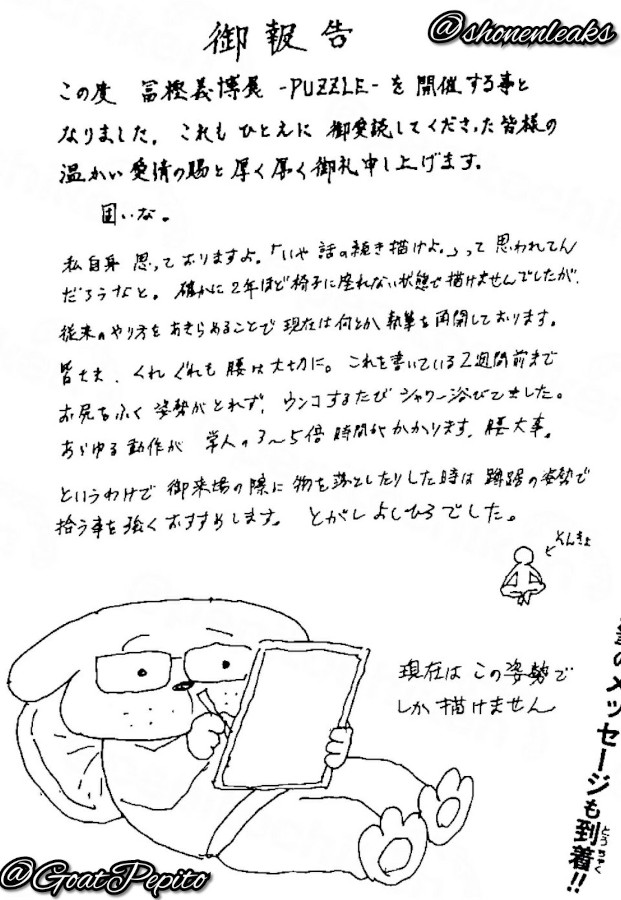 @shonenleaks
御報告
この度 冨樫義博展 -PUZZLE- を 開催する事と
なりました。これも ひとえに 御愛読してくださった皆様の
温かい愛情の賜と厚く厚く御礼申し上げます。
固いな。
私自身 思っておりますよ。「いや 話の続き描けよ。」って 思われてん
だろうなと。確かに 2年ほど椅子に座れない状態で描けませんでしたが、
従来のやり方をあきらめることで 現在は何とか執筆を再開しております。
皆さま、くれぐれも 腰は大切に。これを書いている2週間前まで
お尻をふく 姿勢がとれず、ウンコするたび シャワー浴びてました。
あらゆる動作が 常人の3〜5倍 時間がかかります。腰大事。
というわけで 御来場の際に 物を落としたりした時は 蹲踞の姿勢で
拾う事を強くおすすめします。 とがしよしひろでした。
そんきょ
現在は この姿勢で
しか 描けません
のメッセージも到着!!
とうちゃく
@GoatPepito